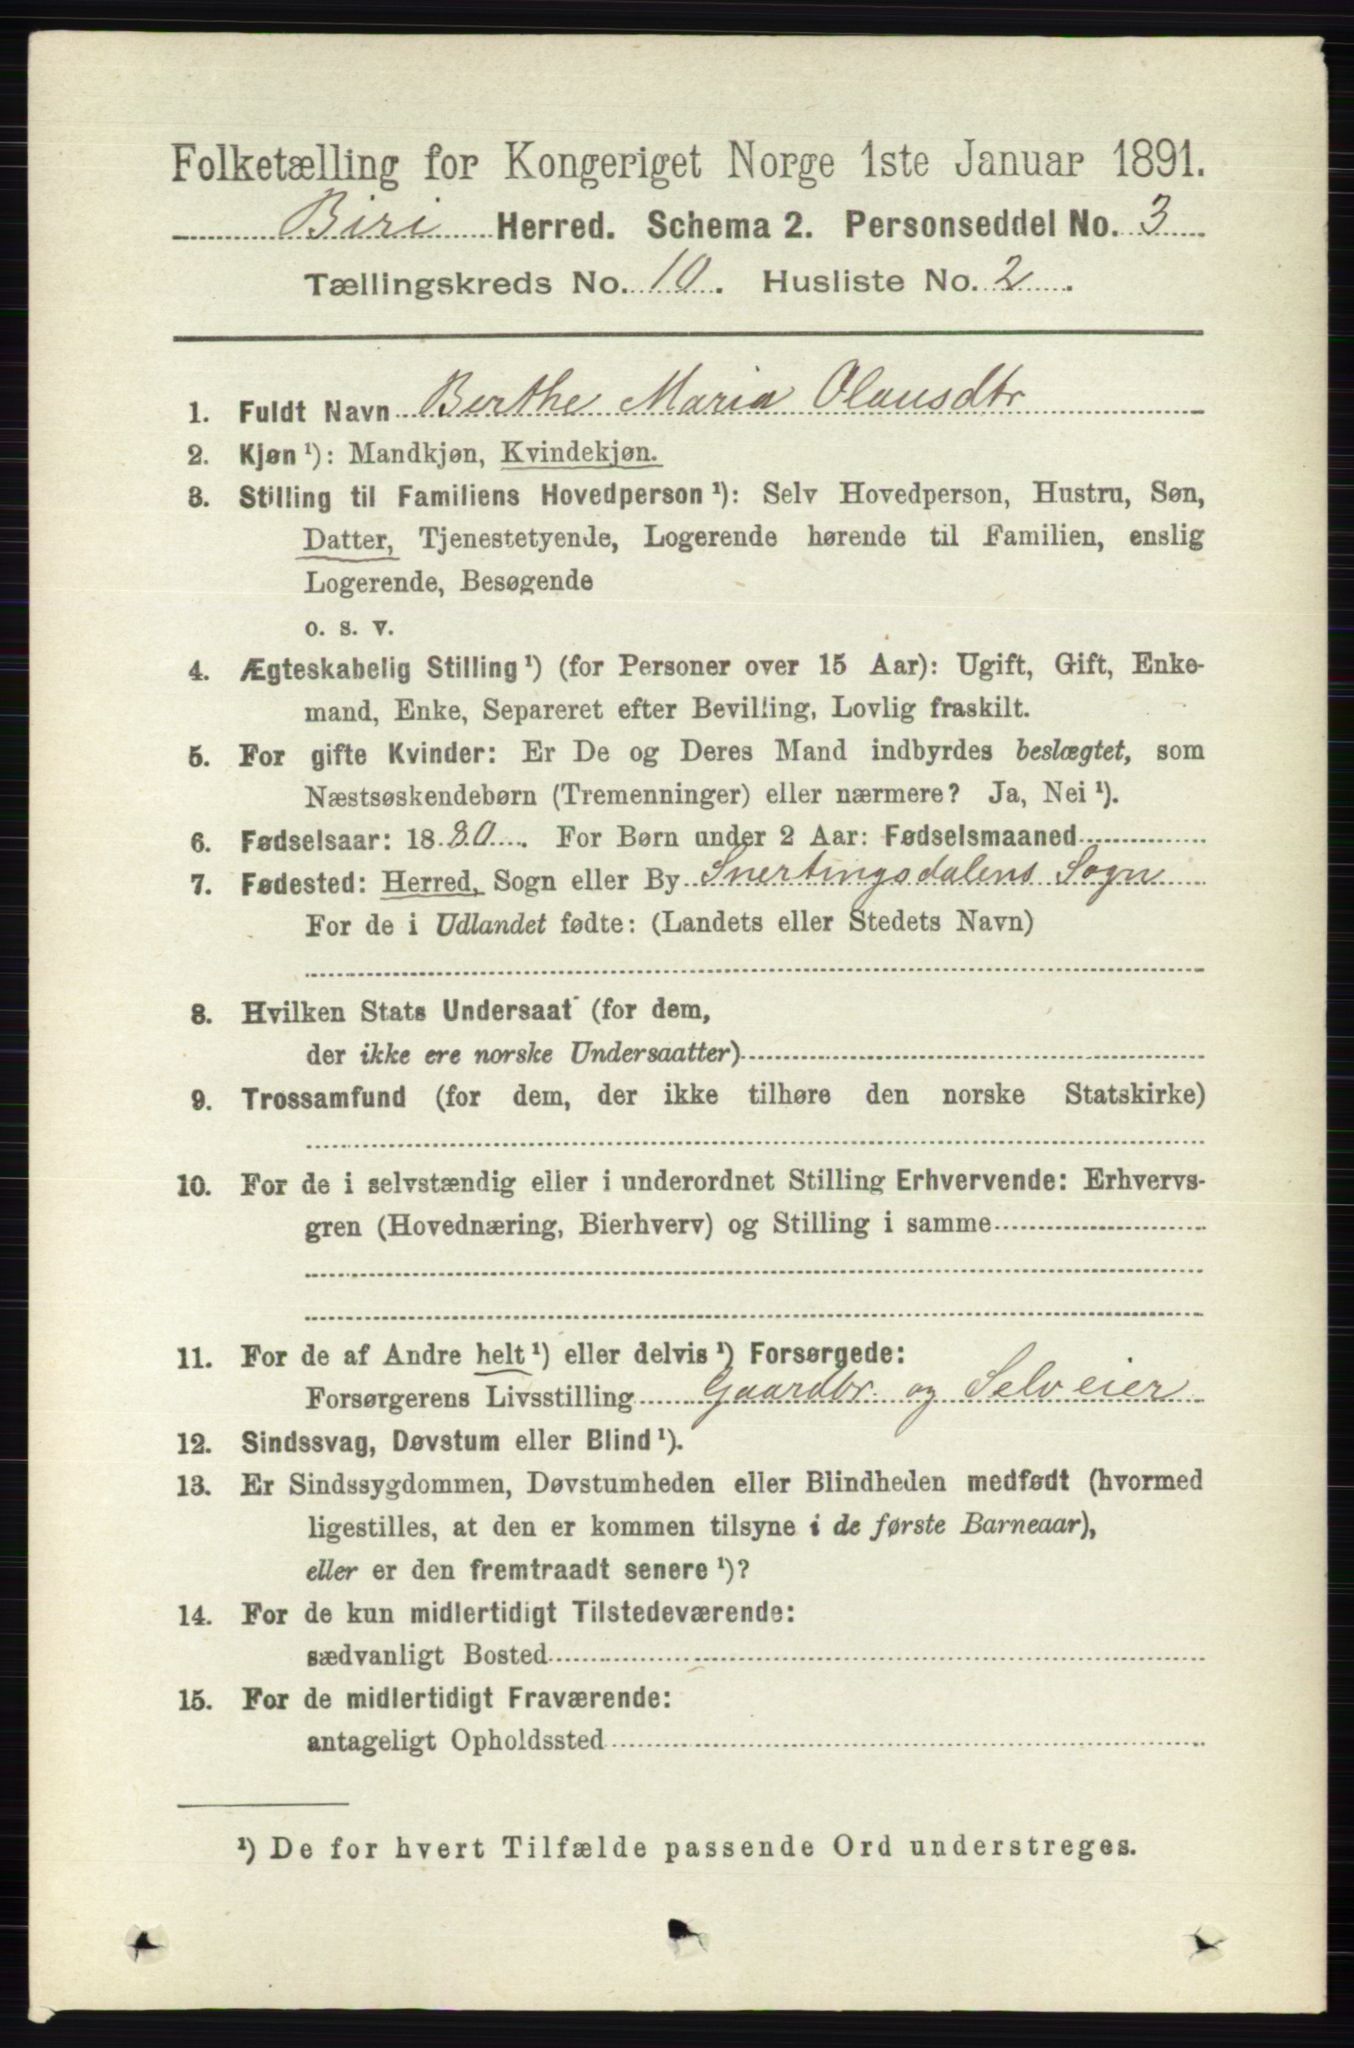 Folketælling for Kongeriget Norge 1ste Januar 1891.
Biri Herred. Schema 2. Personseddel No. 3
Tællingskreds No. 10. Husliste No. 2.
1. Fuldt Navn Berthe Maria Olausdtr
2. Kjøn ¹): Mandkjøn, Kvindekjøn.
3. Stilling til Familiens Hovedperson ¹): Selv Hovedperson, Hustru, Søn,
Datter, Tjenestetyende, Logerende hørende til Familien, enslig
Logerende, Besøgende
o. s. v.
4. Ægteskabelig Stilling ¹) (for Personer over 15 Aar): Ugift, Gift, Enke-
mand, Enke, Separeret efter Bevilling, Lovlig fraskilt.
5. For gifte Kvinder: Er De og Deres Mand indbyrdes beslægtet, som
Næstsøskendebørn (Tremenninger) eller nærmere? Ja, Nei ¹).
6. Fødselsaar: 1880. For Børn under 2 Aar: Fødselsmaaned
7. Fødested: Herred, Sogn eller By Snertingsdalens Sogn
For de i Udlandet fødte: (Landets eller Stedets Navn)
8. Hvilken Stats Undersaat (for dem,
der ikke ere norske Undersaatter)
9. Trossamfund (for dem, der ikke tilhøre den norske Statskirke)
10. For de i selvstændig eller i underordnet Stilling Erhvervende: Erhvervs-
gren (Hovednæring, Bierhverv) og Stilling i samme
11. For de af Andre helt ¹) eller delvis ¹) Forsørgede:
Forsørgerens Livsstilling Gaardbr. og Selveier
12. Sindssvag, Døvstum eller Blind ¹).
13. Er Sindssygdommen, Døvstumheden eller Blindheden medfødt (hvormed
ligestilles, at den er kommen tilsyne i de første Barneaar),
eller er den fremtraadt senere ¹)?
14. For de kun midlertidigt Tilstedeværende:
sædvanligt Bosted
15. For de midlertidigt Fraværende:
antageligt Opholdssted
¹) De for hvert Tilfælde passende Ord understreges.